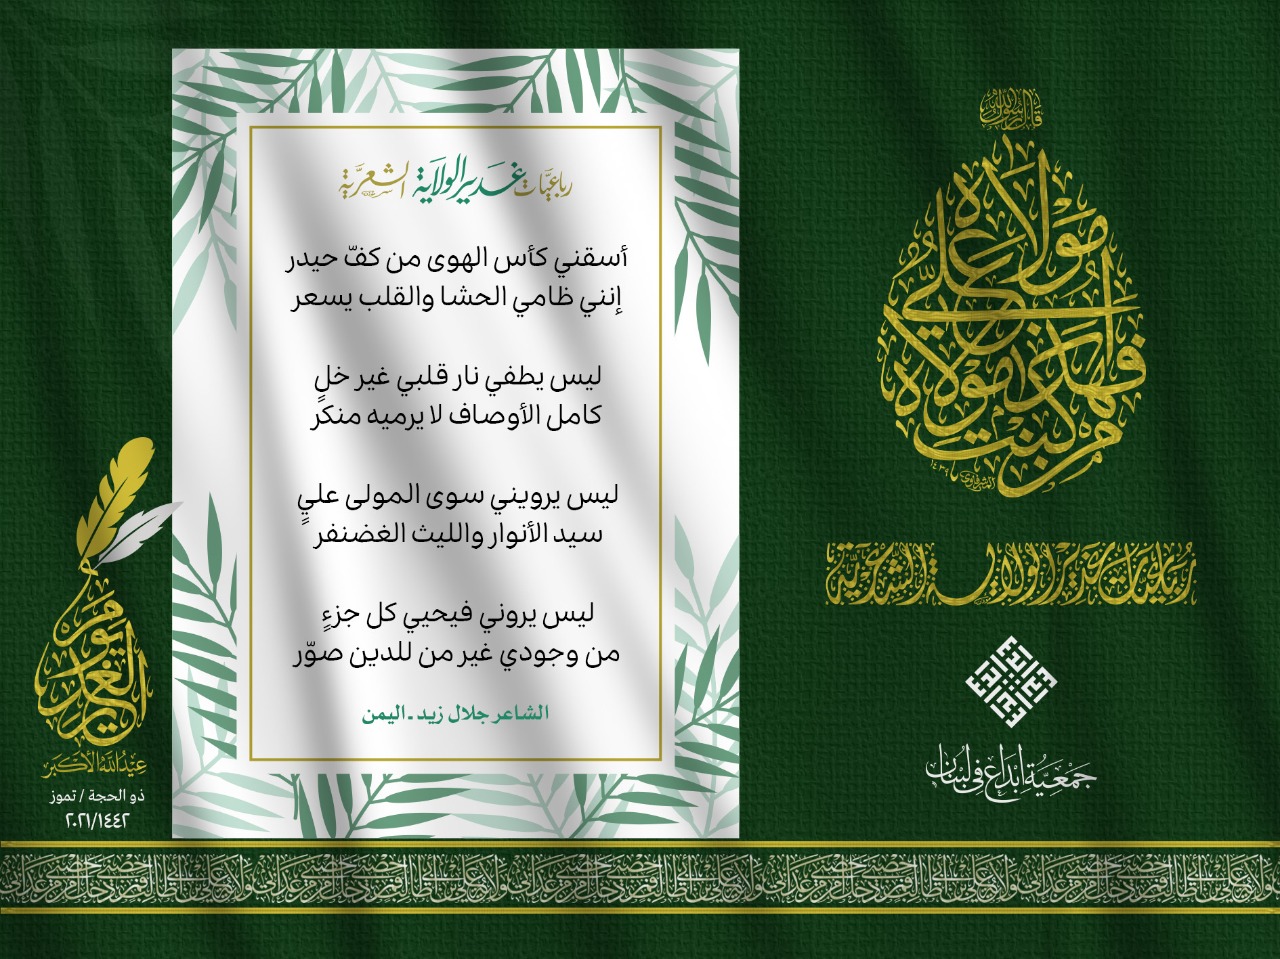 قال رسول الله
من كنت مولاه فهذا علي مولاه
رباعيات غدير الولاية الشعرية
جمعية إبداع في لبنان
رباعيّات غدير الولاية الشعريّة
أسقني كأس الهوى من كفّ حيدر
إنني ظامي الحشا والقلب يسعر
ليس يطفي نار قلبي غير خلٍ
كامل الأوصاف لا يرميه منكر
ليس يرويني سوى المولى عليٍ
سيد الأنوار والليث الغضنفر
ليس يروني فيحيي كل جزءٍ
من وجودي غير من للدين صوّر
الشاعر جلال زيد - اليمن
يوم الغدير
عيد الله الأكبر
ذو الحجة / تموز
٢٠٢١/١٤٤٢
ولاية علي بن أبي طالب حصني فمن دخل حصني أمن من عذابي